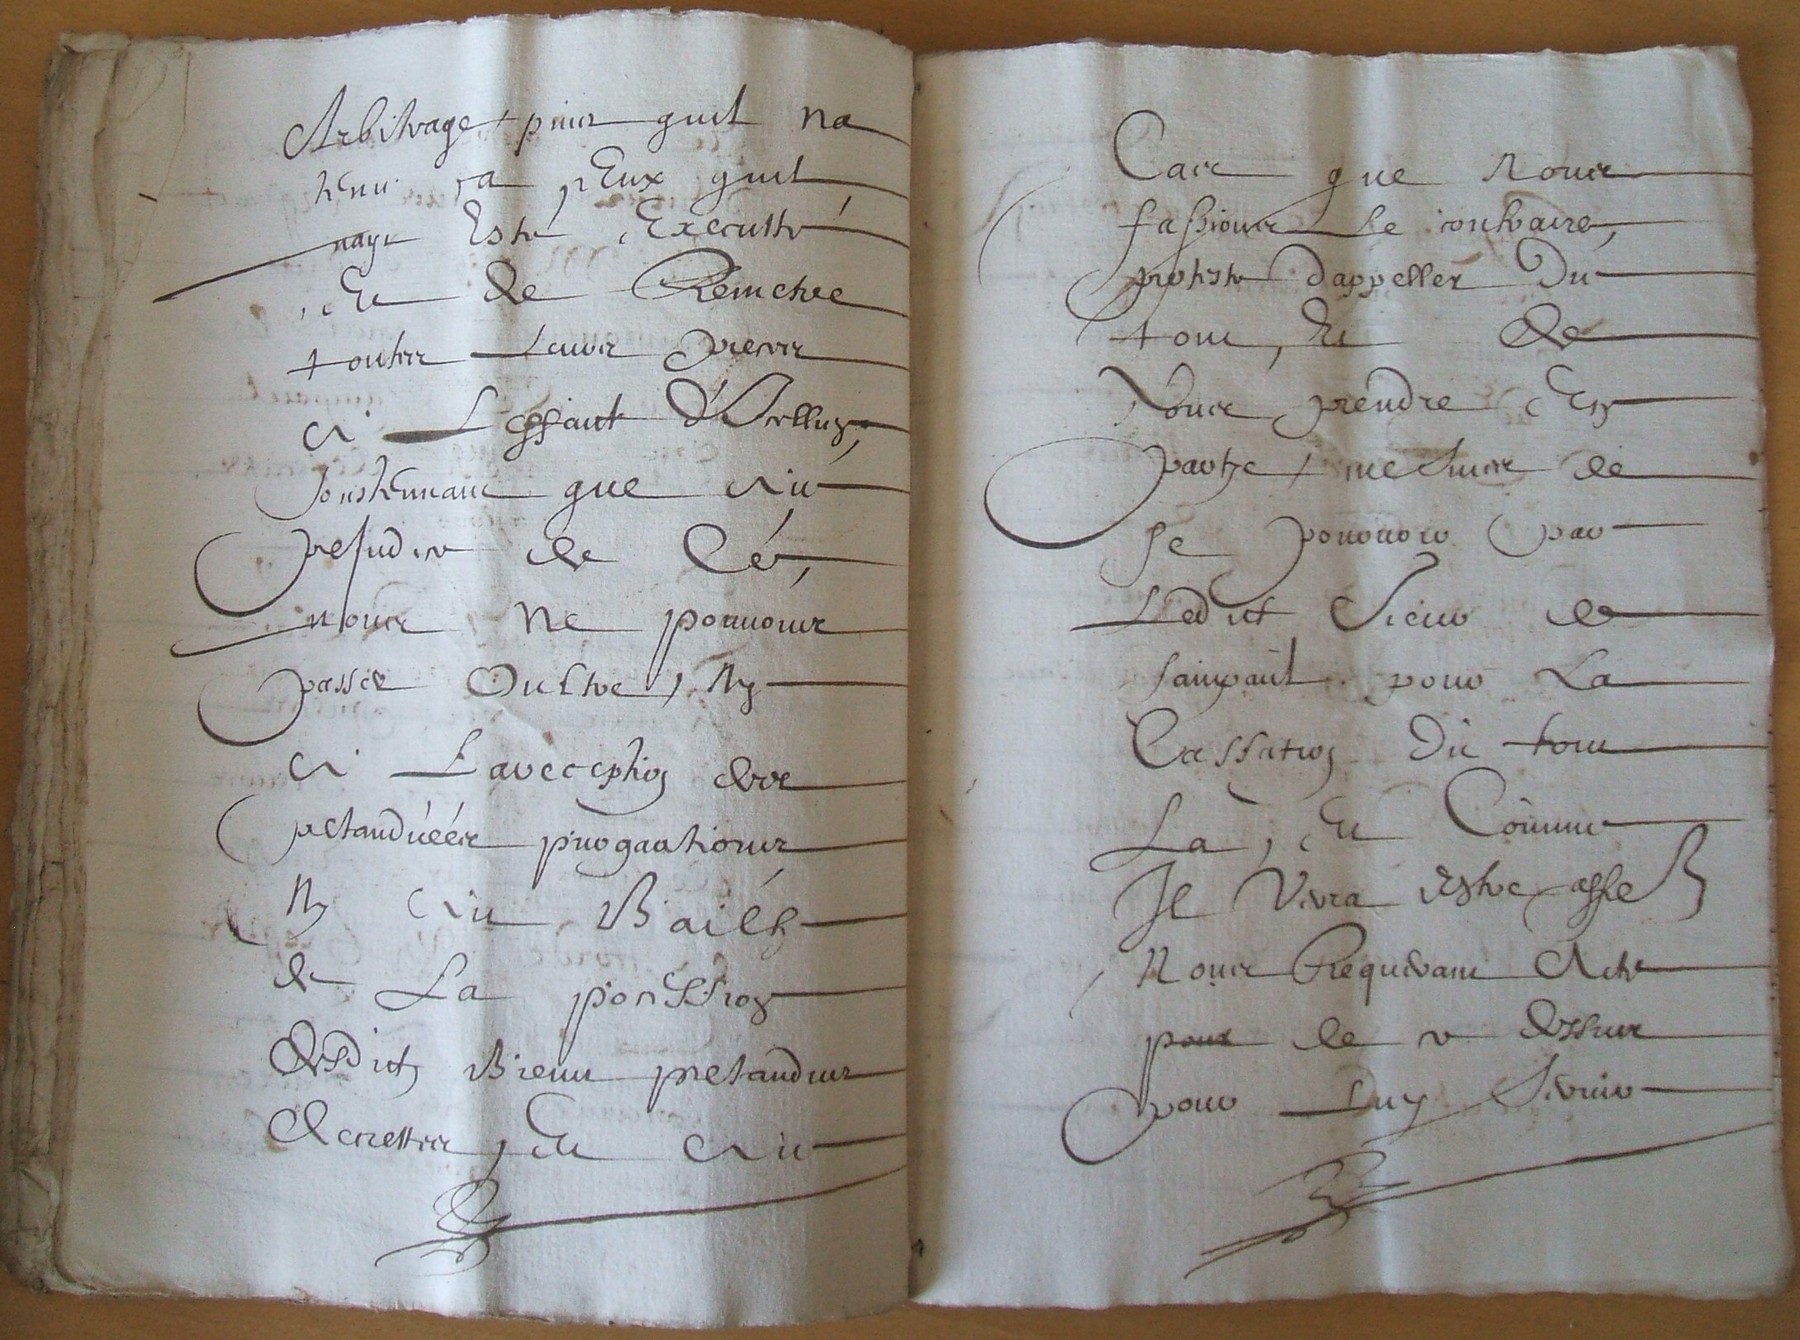 Arbitrage pour quil na
tenu ra peux quil
naye Esté Executté
Et de Remetre
toutes Leurs preces
A Leffaict d'Icelluy,
soustennant que Au
prejudice de Ce,
nous ne pouvons
passer Oultre, Ny
A Lavecephion des
pretanduees purogaations
Ny Au Bailh
de La possession
desdits Biens pretandus
decrettes, Et Au
Cas que Nous
fassions Le contraire,
proteste dappeller Du
tout, Et de
Nous prendre En
partye, mesmes de
se pourvoir par
Ledict Sieur de
sainpaul pour La
Cassation Du tout
La, Et Comme
Il Verra Estre affe
Nous Requerant Acte
pour de ce dessus
pour Luy Servir